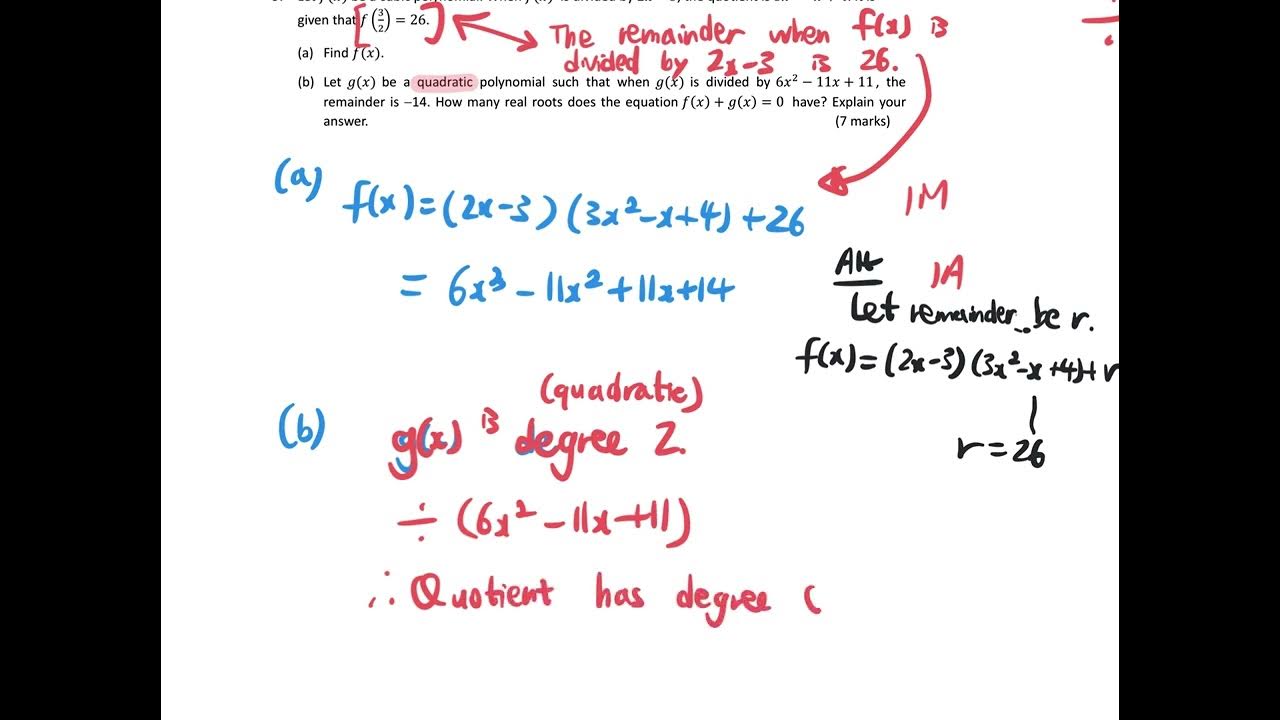 given that f(3/2) = 26.
The remainder when f(x) is
divided by 2x-3 is 26.
(a) Find f(x).
(b) Let g(x) be a quadratic polynomial such that when g(x) is divided by 6x² − 11x + 11, the
remainder is −14. How many real roots does the equation f(x) + g(x) = 0 have? Explain your
answer. (7 marks)
(a) f(x)=(2x-3)(3x²-x+4)+26 1M
= 6x³-11x²+11x+14 1A
Alt
Let remainder be r.
f(x)=(2x-3)(3x²-x+4)+r
r=26
(b) (quadratic)
g(x) is degree 2.
÷ (6x²-11x+11)
∴ Quotient has degree